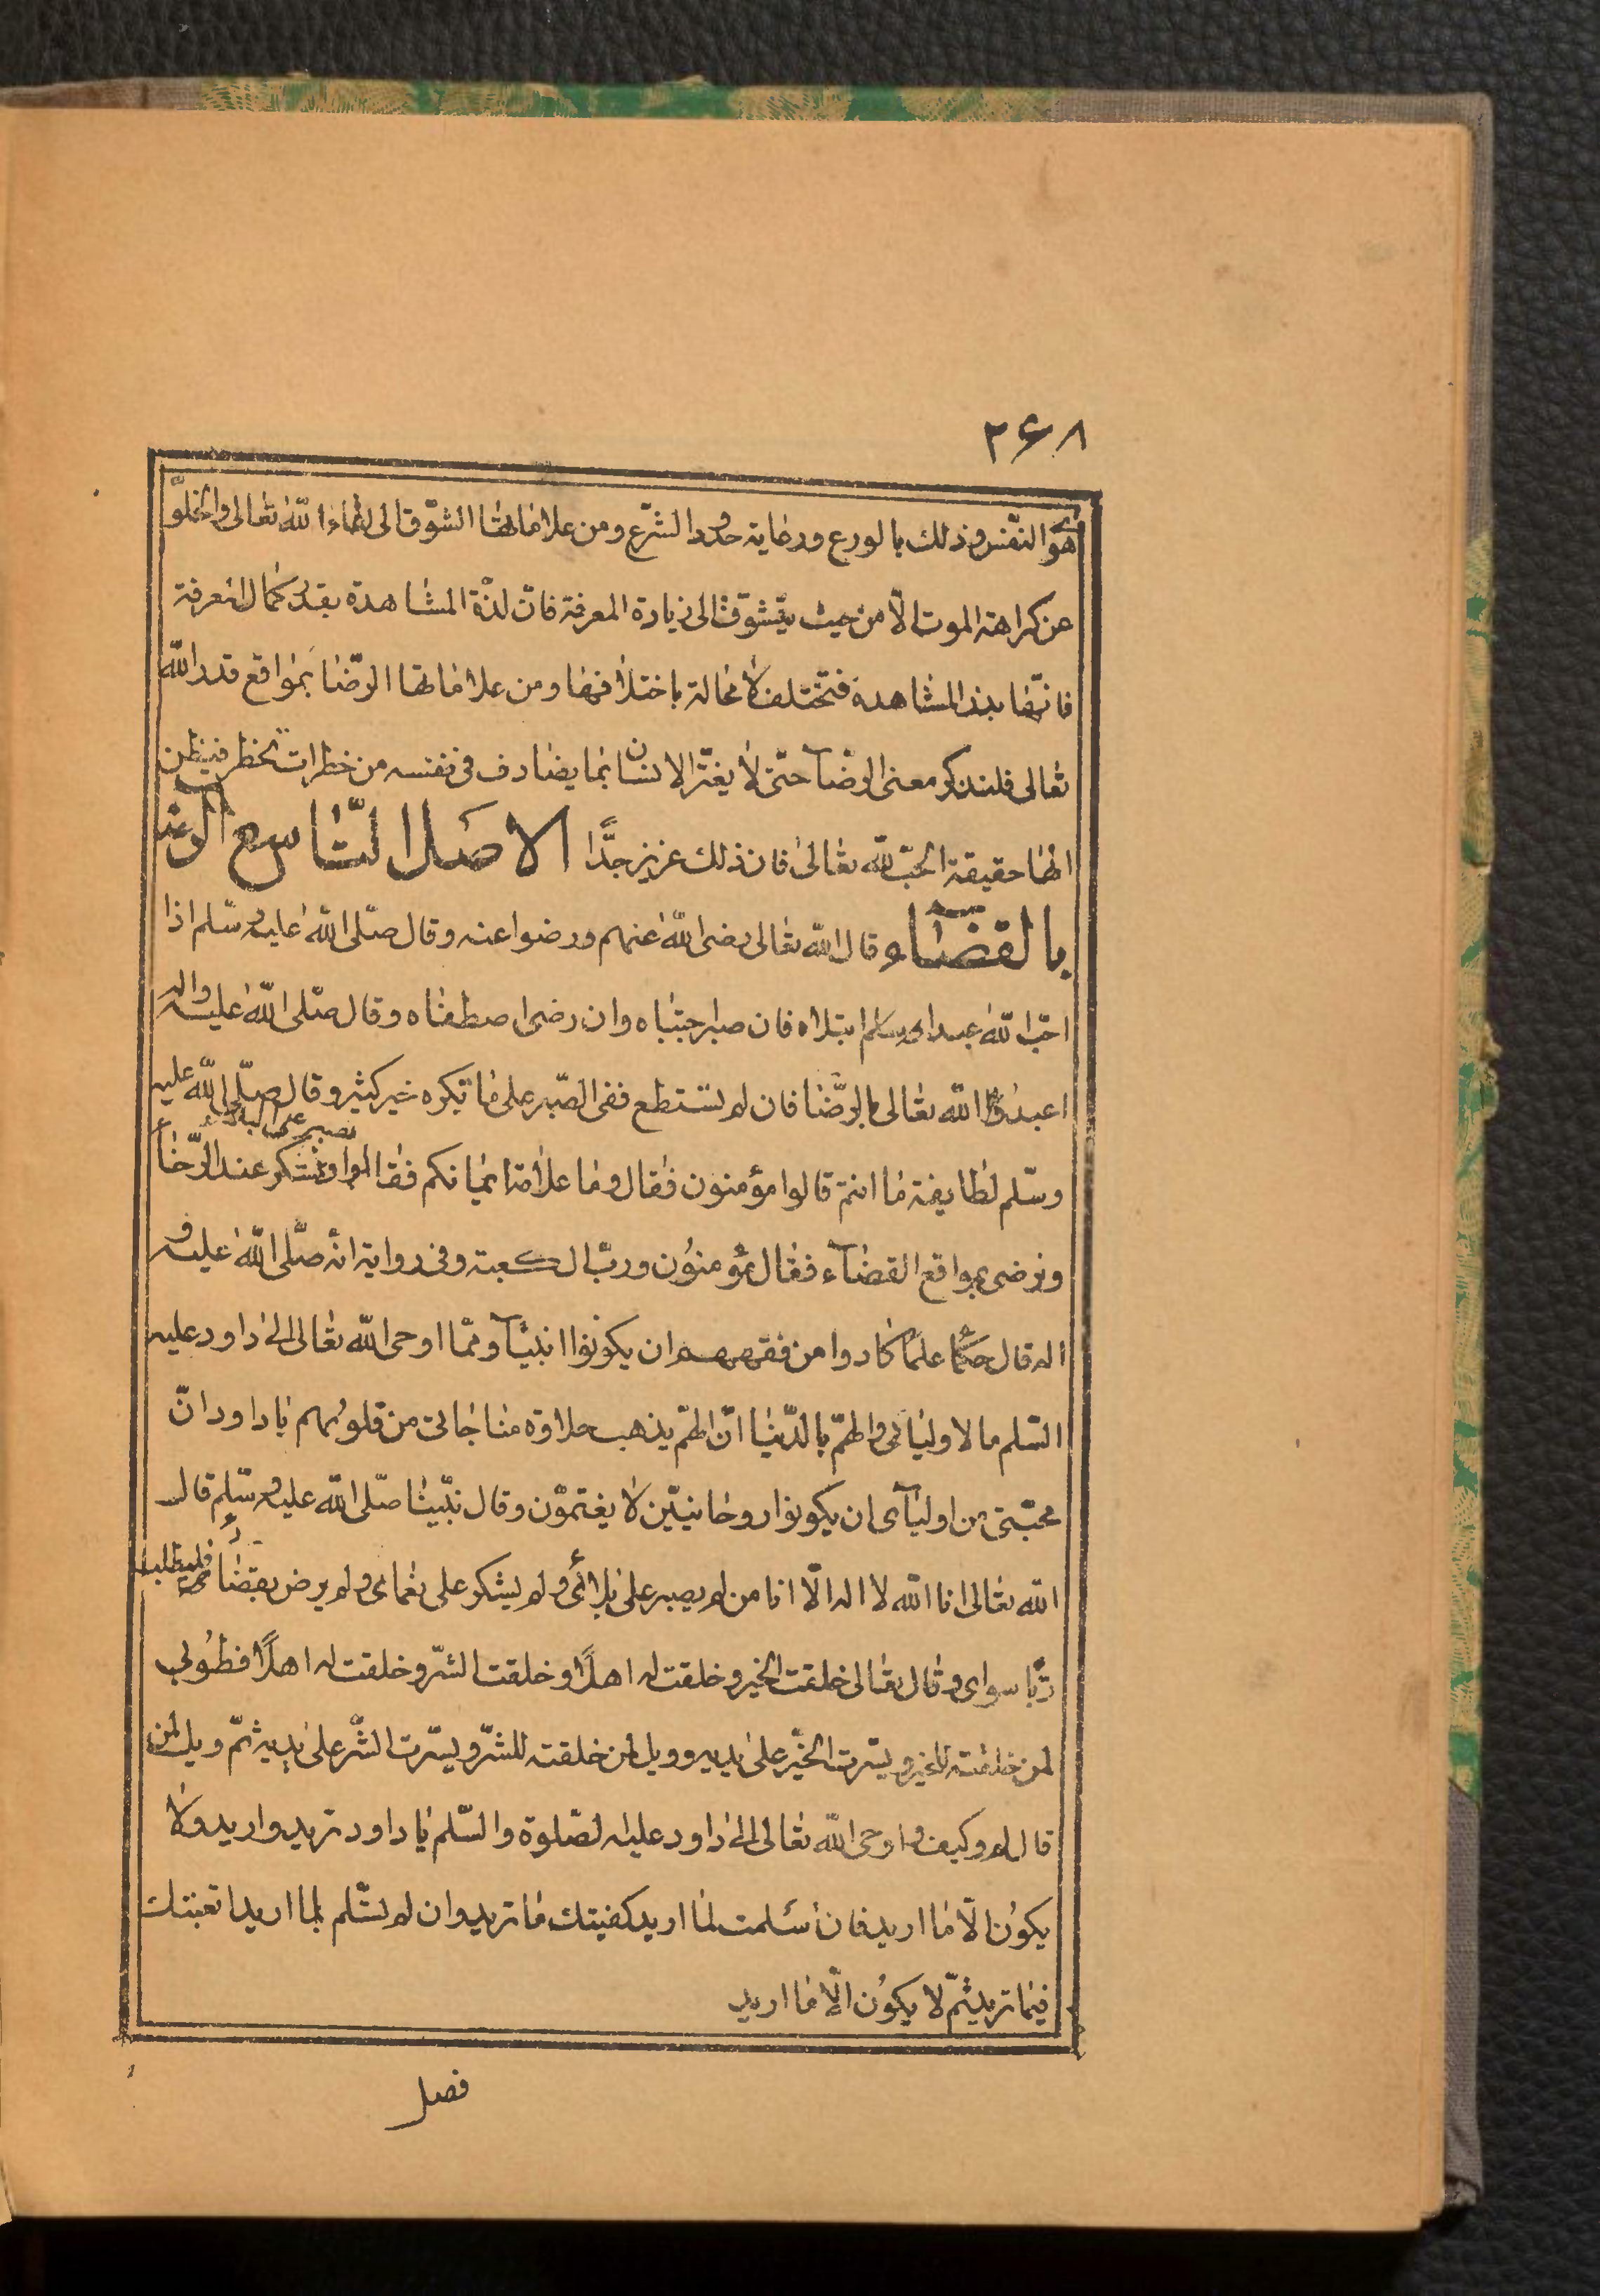 ۲۶۸
هوى النّفس وذلك بالورع ورعاية حدود الشّرع ومن علاماتها الشّوق الى لقاء الله تعالى والخلوّ
عن كراهة الموت الّا من حيث يتشوّق الى زيادة المعرفة فانّ لذّة المشاهدة بقدر كمال المعرفة
فانّها بذر المشاهدة فتختلف لا محالة باختلافها ومن علاماتها الرّضا بمواقع قدر الله
تعالى فلنذكر معنى الرضآ حتّى لا يغترّ الانسان بما يصادف فى نفسه من خطرات تخطر فيظن
انها حقيقة الحبّ لله تعالى فان ذلك عزيز جدًّا الاصل التّاسع الرضا
بالقضآء وقال الله تعالى رضى الله عنهم ورضوا عنه وقال صلّى الله عليه وسلّم اذا
احبّ الله عبدا ابتلاه فان صبر اجتباه وان رضى اصطفاه وقال صلّى الله عليه واله وسلم
اعبدوا الله تعالى بالرّضا فان لم تستطع ففى الصّبر على ما تكره خير كثير وقال صلّى الله عليه
وسّلم لطايفة ما انتم قالوا مؤمنون فقال وما علامة ايمانكم فقالوا نصبر على البلاء ونشكر عند الرّخاء
ونرضى بمواقع القضآء فقال مؤمنون وربّ الكعبة وفى رواية انه صلّى الله عليه و
اله قال حكماء علماء كادوا من فقههم ان يكونوا انبيآء وممّا اوحى الله تعالى الى داود عليه
السّلم ما لاوليائى والهمّ بالدّنيا انّ الهمّ يذهب حلاوة مناجاتى من قلوبهم يا داود انّ
محبّتى من اوليآى ان يكونوا روحانيّين لا يغتمّون وقال نبّينا صلّى الله عليه وسّلم قال
الله تعالى انا الله لا اله الّا انا من لم يصبر على بلائى ولم يشكر على نعماى ولم يرض بقضائى فليطلب
ربًّا سواى وقال تعالى خلقت الخير وخلقت له اهلًا وخلقت الشّر وخلقت له اهلًا فطوبى
لمن خلقته للخير ويسّرت الخير على يديه وويل لمن خلقته للشرّ ويسّرت الشّر على يديه ثمّ ويل لمن
قال لم وكيف واوحى الله تعالى الى داود عليه الصّلوة والسّلم يا داود تريد واريد ولا
يكون الّا ما اريد فان سلمت لما اريد كفيتك ما تريد وان لم تسّلم لما اريد اتعبتك
فيما تريد ثمّ لا يكون الّا ما اريد
فصل